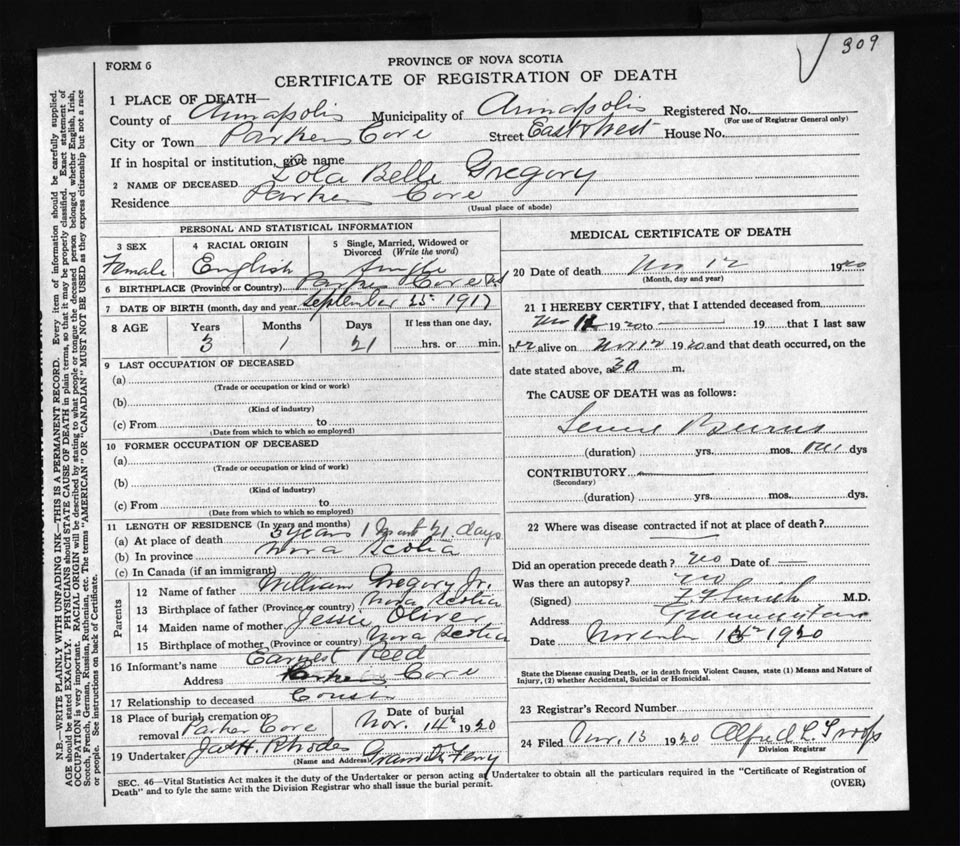 309
FORM 6
PROVINCE OF NOVA SCOTIA
CERTIFICATE OF REGISTRATION OF DEATH
1 PLACE OF DEATH—
County of Annapolis Municipality of Annapolis Registered No.
(For use of Registrar General only)
City or Town Parkers Cove Street East & West House No.
If in hospital or institution, give name
2 NAME OF DECEASED Lola Belle Gregory
Residence Parkers Cove
(Usual place of abode)
PERSONAL AND STATISTICAL INFORMATION
3 SEX 4 RACIAL ORIGIN 5 Single, Married, Widowed or Divorced (Write the word)
Female English Single
6 BIRTHPLACE (Province or Country) Parkers Cove N.S
7 DATE OF BIRTH (month, day and year) September 1917
8 AGE Years Months Days If less than one day,
3 1 21 hrs. or min.
9 LAST OCCUPATION OF DECEASED
(a)
(Trade or occupation or kind of work)
(b)
(Kind of industry)
(c) From to
(Date from which to which so employed)
10 FORMER OCCUPATION OF DECEASED
(a)
(Trade or occupation or kind of work)
(b)
(Kind of industry)
(c) From to
(Date from which to which so employed)
11 LENGTH OF RESIDENCE (In years and months)
(a) At place of death 3 years 1 Month 21 days
(b) In province Nova Scotia
(c) In Canada (if an immigrant)
Parents
12 Name of father William Gregory Jr.
13 Birthplace of father (Province or country) Nova Scotia
14 Maiden name of mother Jessie Oliver
15 Birthplace of mother (Province or country) Nova Scotia
16 Informant's name Earnest Reed
Address Parkers Cove
17 Relationship to deceased Cousin
18 Place of burial cremation or removal Parker Cove Date of burial Nov. 14th 1920
19 Undertaker Jas H. Rhodes Granville Ferry
(Name and Address)
MEDICAL CERTIFICATE OF DEATH
20 Date of death Nov 12 1920
(Month, day and year)
21 I HEREBY CERTIFY, that I attended deceased from
Nov 12 1920 to 19 that I last saw
her alive on Nov 12 1920 and that death occurred, on the
date stated above, at 3 a m.
The CAUSE OF DEATH was as follows:
Severe Burns
(duration) yrs. mos. dys
CONTRIBUTORY
(Secondary)
(duration) yrs. mos. dys.
22 Where was disease contracted if not at place of death?
Did an operation precede death? no Date of
Was there an autopsy? no
(Signed) M.D.
Address
Date November 1920
State the Disease causing Death, or in death from Violent Causes, state (1) Means and Nature of
Injury, (2) whether Accidental, Suicidal or Homicidal.
23 Registrar's Record Number
24 Filed Nov. 15 1920 Alfred L. Troop
Division Registrar
SEC. 46—Vital Statistics Act makes it the duty of the Undertaker or person acting as Undertaker to obtain all the particulars required in the "Certificate of Registration of
Death" and to fyle the same with the Division Registrar who shall issue the burial permit.
(OVER)
N.B.—WRITE PLAINLY WITH UNFADING INK—THIS IS A PERMANENT RECORD. Every item of information should be carefully supplied.
AGE should be stated EXACTLY. PHYSICIANS should STATE CAUSE OF DEATH in plain terms, so that it may be properly classified. Exact statement of
OCCUPATION is very important. RACIAL ORIGIN will be described by stating to what people or tongue the deceased person belonged whether English, Irish,
Scotch, French, German, Russian, Ruthenian, etc. The terms "AMERICAN" OR "CANADIAN" MUST NOT BE USED as they express citizenship but not a race
or people. See instructions on back of Certificate.